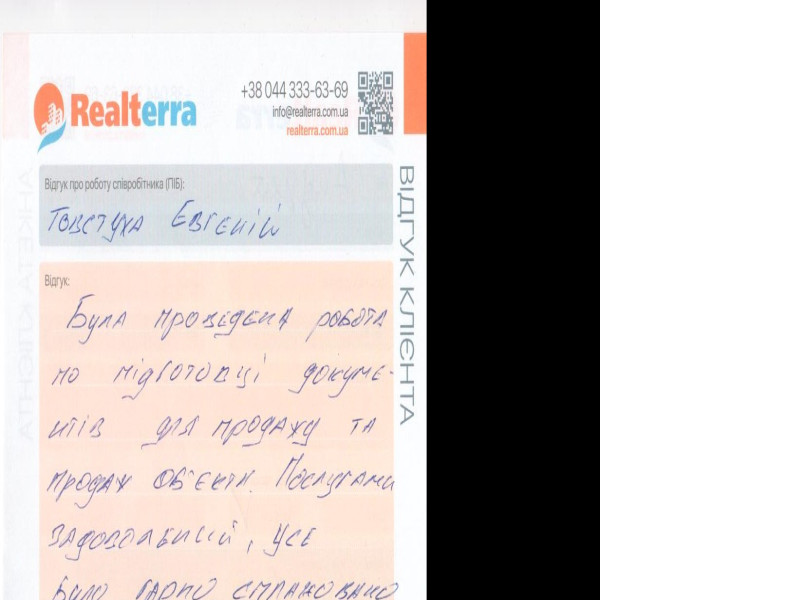 Realterra
+38 044 333-63-69
info@realterra.com.ua
realterra.com.ua
ВІДГУК КЛІЄНТА
Відгук про роботу співробітника (ПІБ):
Товстуха Євгеній
Відгук:
Була проведена робота
по підготовці докуме-
нтів для продажу та
продаж об'єкти. Послугами
задоволений, усе
було гарно сплановано